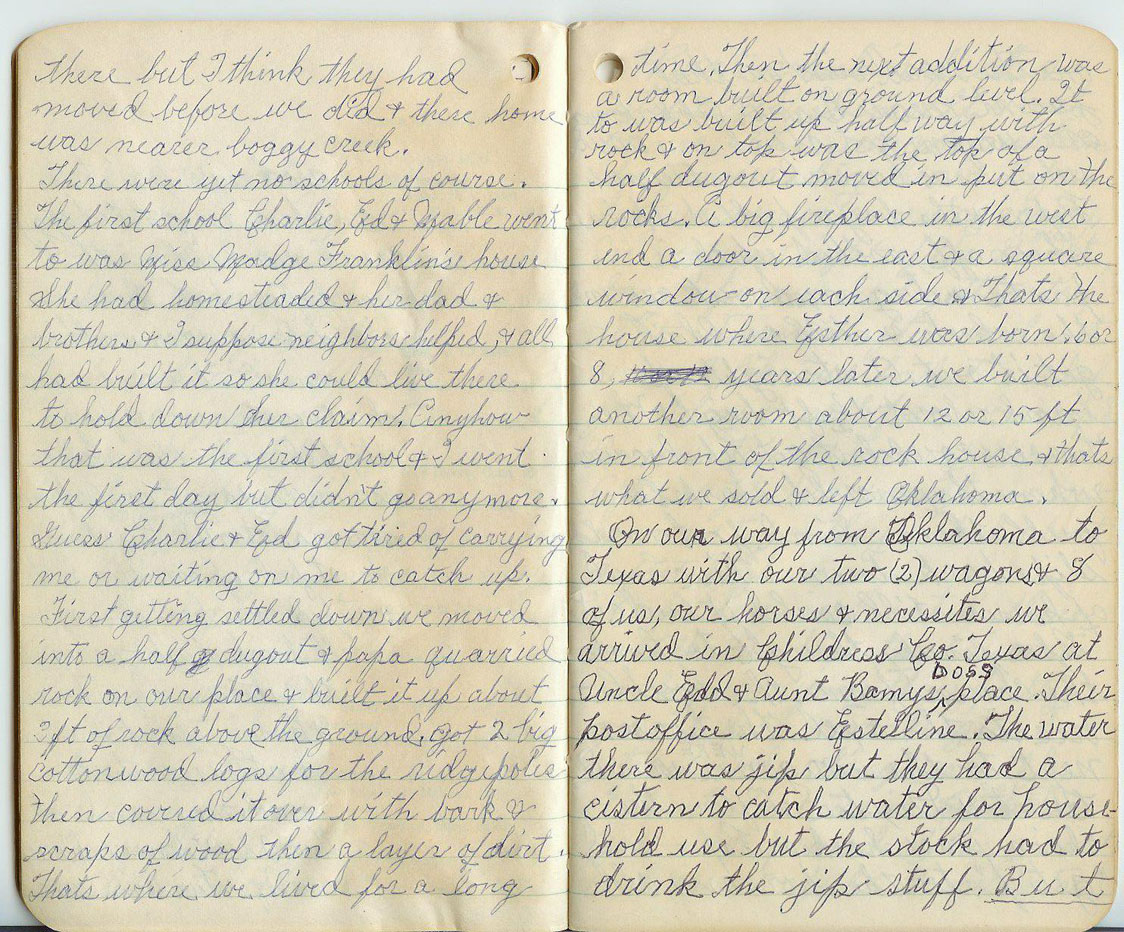 there but I think they had
moved before we did & there home
was nearer boggy creek.
There were yet no schools of course.
The first school Charlie, Ed & Mable went
to was Miss Madge Franklin's house
She had homesteaded & her dad &
brothers & I suppose neighbors helped, & all
had built it so she could live there
to hold down her claim. Anyhow
that was the first school & I went
the first day but didn't go anymore.
Guess Charlie & Ed got tired of carrying
me or waiting on me to catch up.
First getting settled down we moved
into a half dugout & papa quarried
rock on our place & built it up about
3ft of rock above the ground, got 2 big
cottonwood logs for the ridgepoles
then covered it over with bark &
scraps of wood then a layer of dirt.
Thats where we lived for a long
time. Then the next addition was
a room built on ground level. It
to was built up half way with
rock & on top was the top of a
half dugout moved in put on the
rocks. A big fireplace in the west
end a door in the east & a square
window on each side & Thats the
house where Esther was born. 6 or
8, years later we built
another room about 12 or 15 ft
in front of the rock house & thats
what we sold & left Oklahoma.
On our way from Oklahoma to
Texas with our two (2) wagons & 8
of us, our horses & necessites we
arrived in Childress Co. Texas at
Uncle Edd & Aunt Bamys Doss place. Their
postoffice was Estelline. The water
there was jip but they had a
cistern to catch water for house-
hold use but the stock had to
drink the jip stuff. But